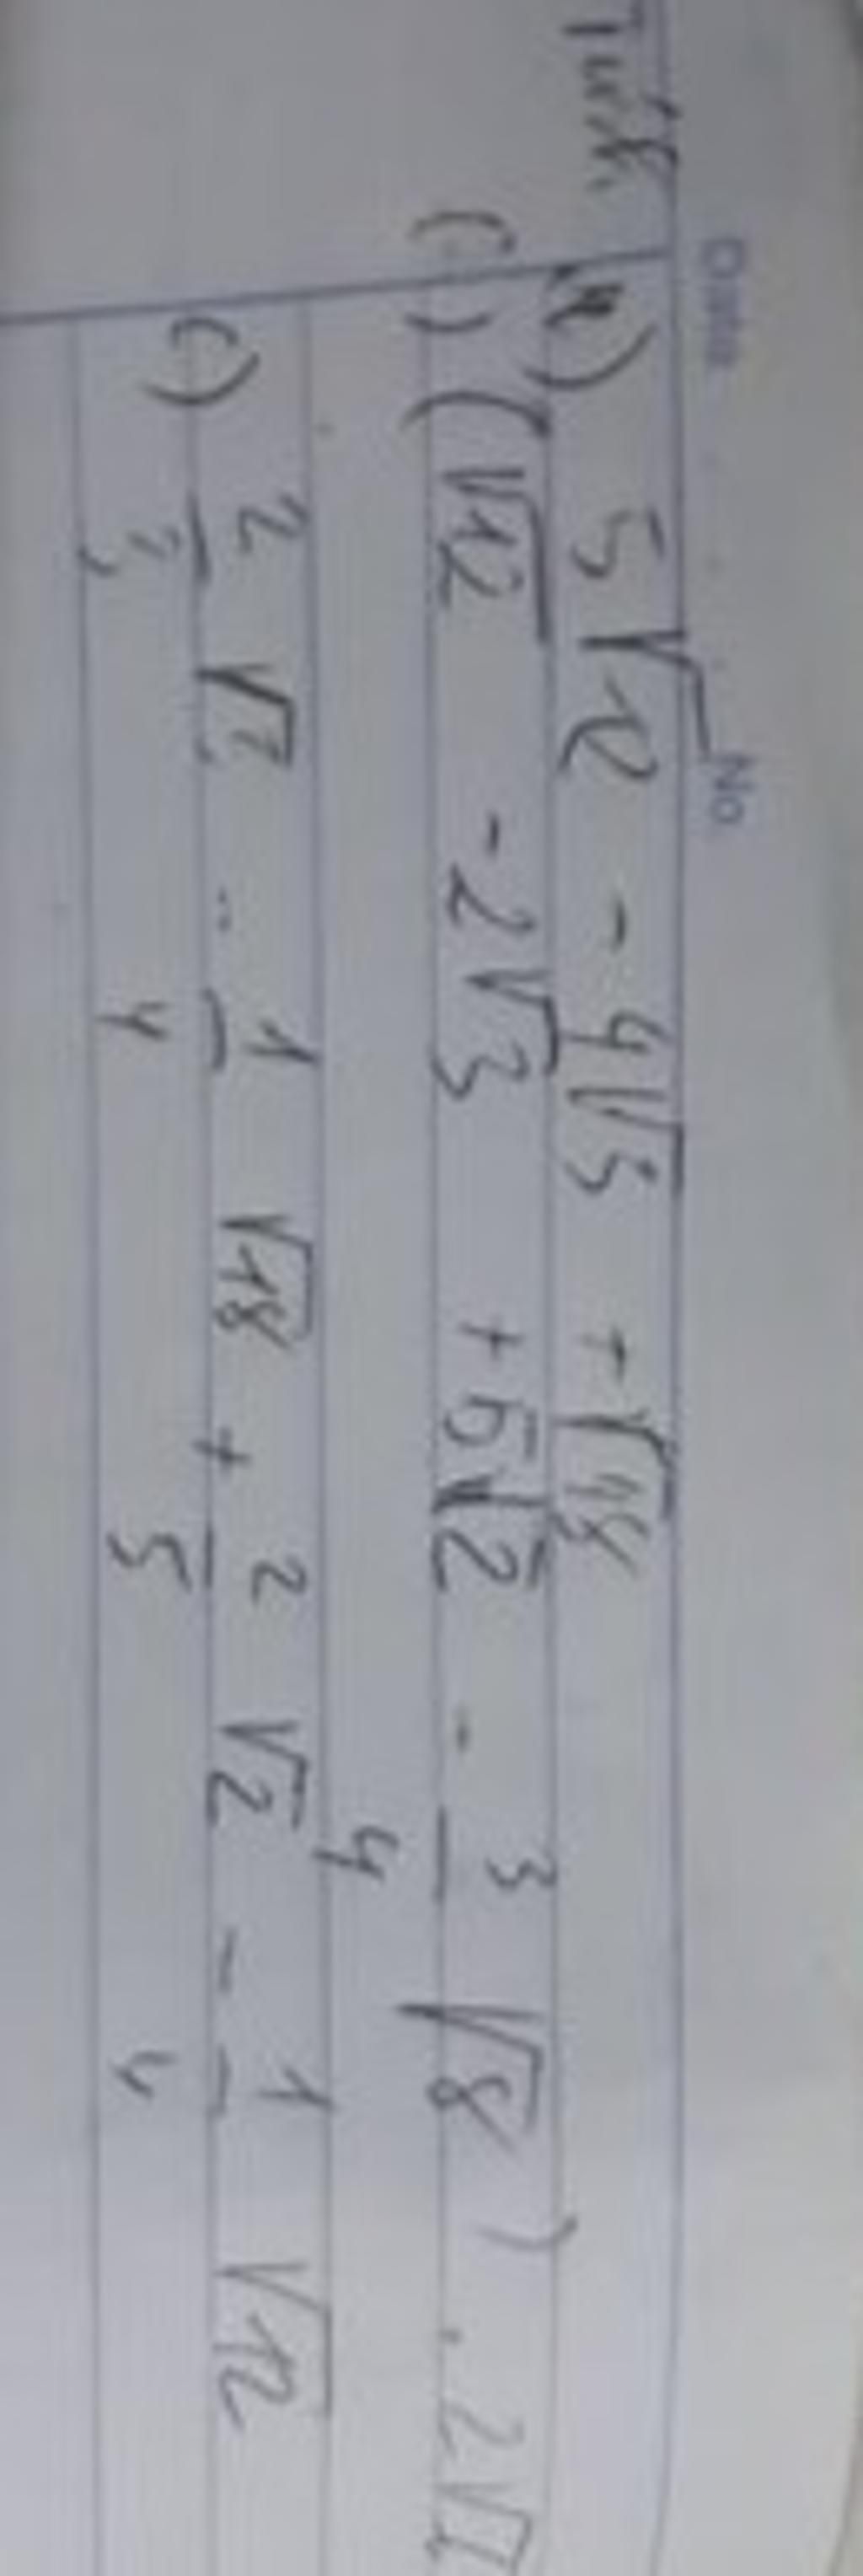 Date No.
Tính.
a) 5√12 - 4√3 + √48
b) (√12 - 2√3 + 5√2 - 3/4 √8) . 2√2
c) 2/3 √3 - 1/4 √18 + 2/5 √2 - 1/4 √12